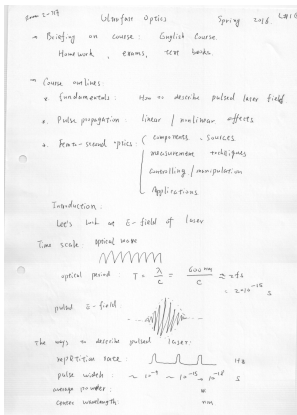 Room 2-217 Ultrafast Optics Spring 2018.
Briefing on course : English Course.
Homework , exams, text books.
Course outlines :
x. fundamentals : How to describe pulsed laser field
x. Pulse propagation : linear / nonlinear effects
x. Femto-second optics : components , sources
measurement techniques
controlling / manipulation
Applications
Introduction :
Let's look at E-field of laser
Time scale : optical wave
optical period : T = λ/c = 600 nm/c ≈ 2 fs
= 2×10⁻¹⁵ s
pulsed E-field :
The ways to describe pulsed laser :
repetition rate : Hz
pulse width : ~ 10⁻⁹ ~ 10⁻¹⁵ ~ 10⁻¹⁸ s
average power : w
center wavelength : nm